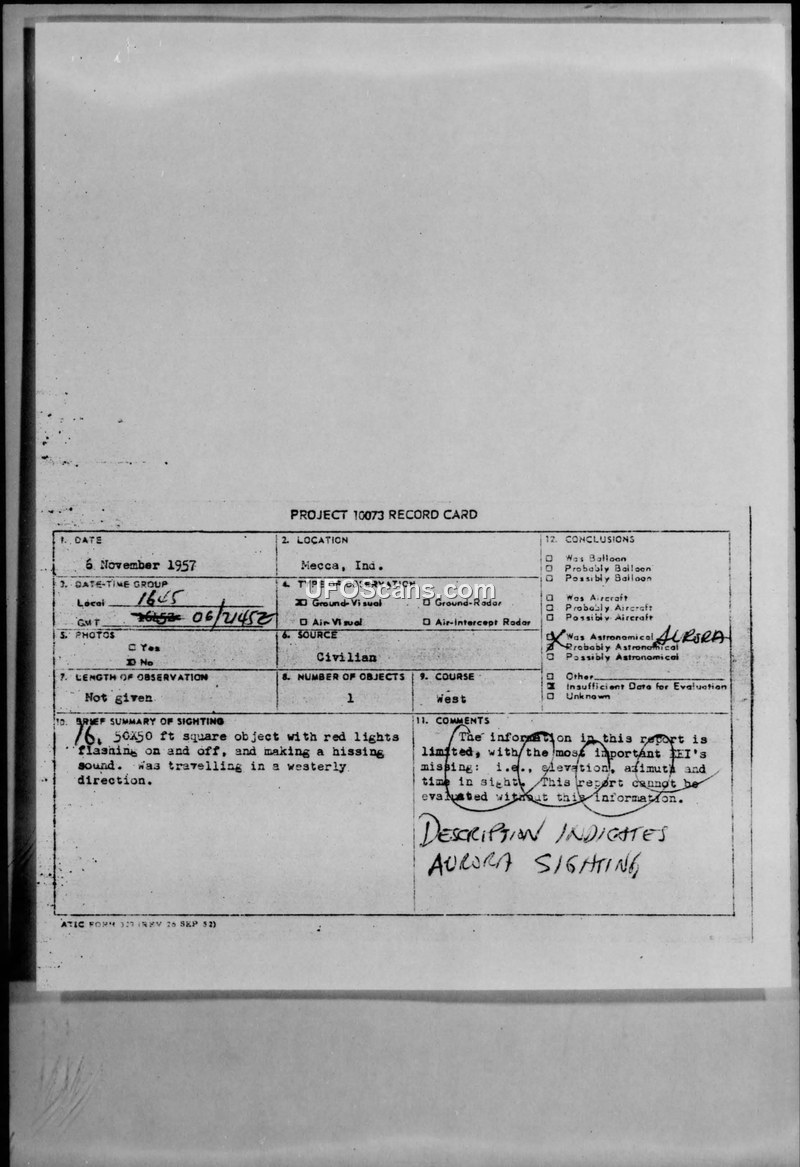 PROJECT 10073 RECORD CARD
1. DATE
6 November 1957
2. LOCATION
Mecca, Ind.
12. CONCLUSIONS
Was Balloon
Probably Balloon
Possibly Balloon
Was Aircraft
Probably Aircraft
Possibly Aircraft
Was Astronomical AURORA
Probably Astronomical
Possibly Astronomical
Other
Insufficient Data for Evaluation
Unknown
3. DATE-TIME GROUP
Local 1645
GMT 06/2145Z
4. TYPE OF OBSERVATION
Ground-Visual
Ground-Radar
Air-Visual
Air-Intercept Radar
UFOScans.com
5. PHOTOS
Yes
No
6. SOURCE
Civilian
7. LENGTH OF OBSERVATION
Not given
8. NUMBER OF OBJECTS
1
9. COURSE
West
10. BRIEF SUMMARY OF SIGHTING
50X50 ft square object with red lights
flashing on and off, and making a hissing
sound. Was travelling in a westerly
direction.
11. COMMENTS
The information in this report is
limited, with the most important EEI's
missing: i.e., elevation, azimuth and
time in sight. This report cannot be
evaluated without this information.
DESCRIPTION INDICATES
AURORA SIGHTING
ATIC FORM (REV 26 SEP 52)